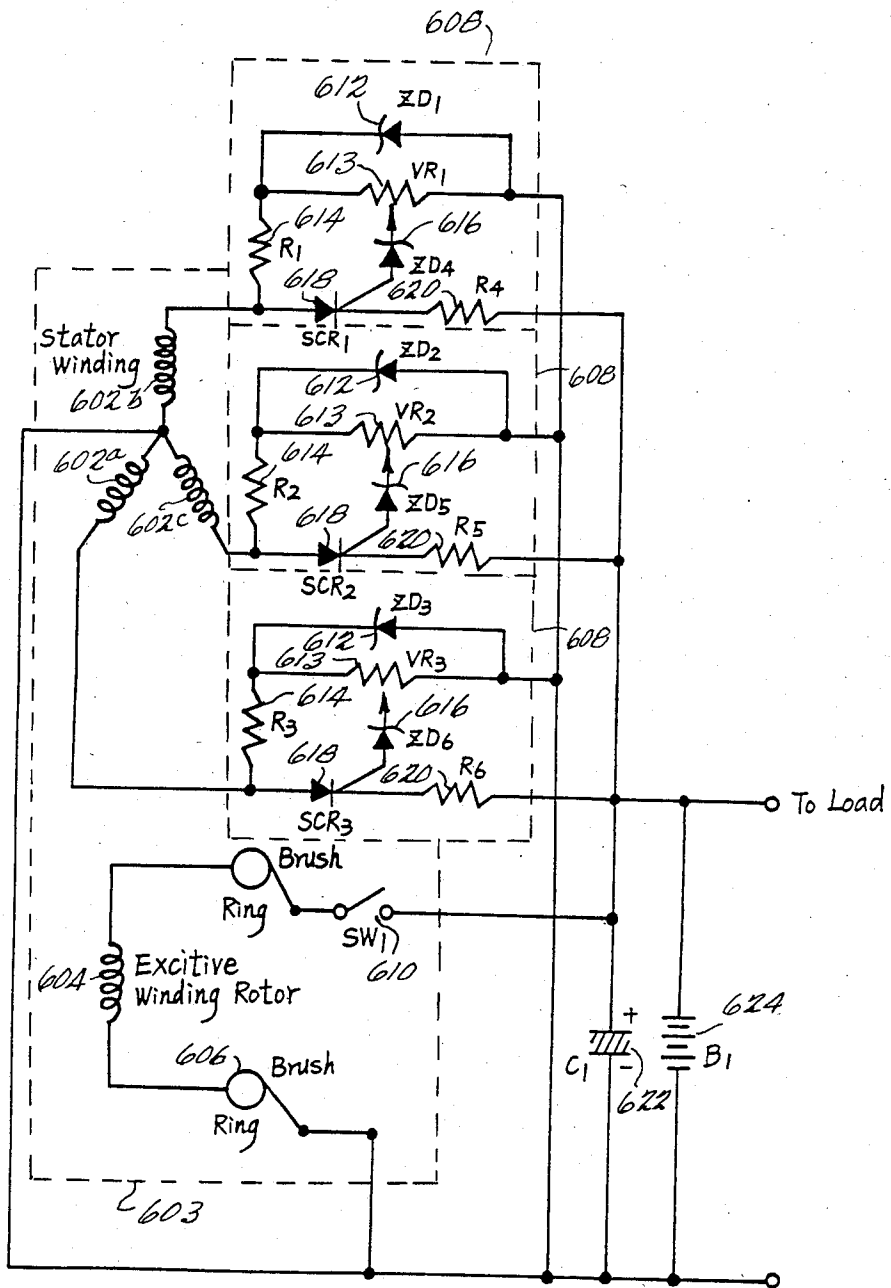 608
612 ZD1
613 VR1
614 616
R1 ZD4
618 620 R4
SCR1
Stator
Winding
602b
ZD2
612 608
613 VR2
614 616
602a R2 ZD5
602c 618 620 R5
SCR2
ZD3
612 608
613 VR3
614 616
R3 ZD6
618 620 R6
SCR3
To Load
Brush
Ring
SW1
610
604 Excitive
Winding Rotor
606 Brush
Ring
+ 624
C1 - B1
622
603